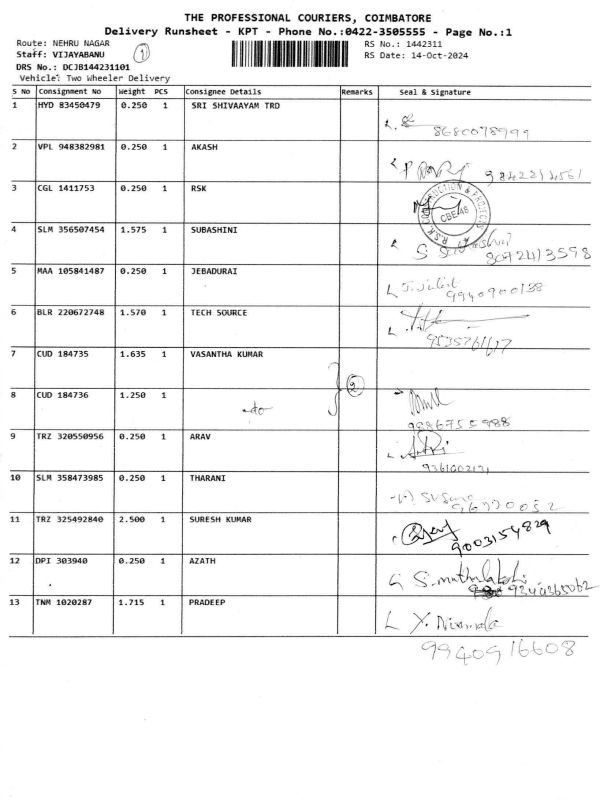 THE PROFESSIONAL COURIERS, COIMBATORE
Delivery Runsheet - KPT - Phone No.:0422-3505555 - Page No.:1
Route: NEHRU NAGAR
Staff: VIJAYABANU 1
DRS No.: DCJB144231101
Vehicle: Two Wheeler Delivery
RS No.: 1442311
RS Date: 14-Oct-2024
S No Consignment No Weight PCS Consignee Details Remarks Seal & Signature
1 HYD 83450479 0.250 1 SRI SHIVAAYAM TRD
8680078999
2 VPL 948382981 0.250 1 AKASH
3 CGL 1411753 0.250 1 RSK
R.S.K. CONSTRUCTION & PROJECTS
CBE-46
4 SLM 356507454 1.575 1 SUBASHINI
5 MAA 105841487 0.250 1 JEBADURAI
6 BLR 220672748 1.570 1 TECH SOURCE
7 CUD 184735 1.635 1 VASANTHA KUMAR
2
8 CUD 184736 1.250 1 do
9 TRZ 320550956 0.250 1 ARAV
10 SLM 358473985 0.250 1 THARANI
11 TRZ 325492840 2.500 1 SURESH KUMAR
9003154829
12 DPI 303940 0.250 1 AZATH
9344365062
13 TNM 1020287 1.715 1 PRADEEP
Y. Nirmala
9940916608